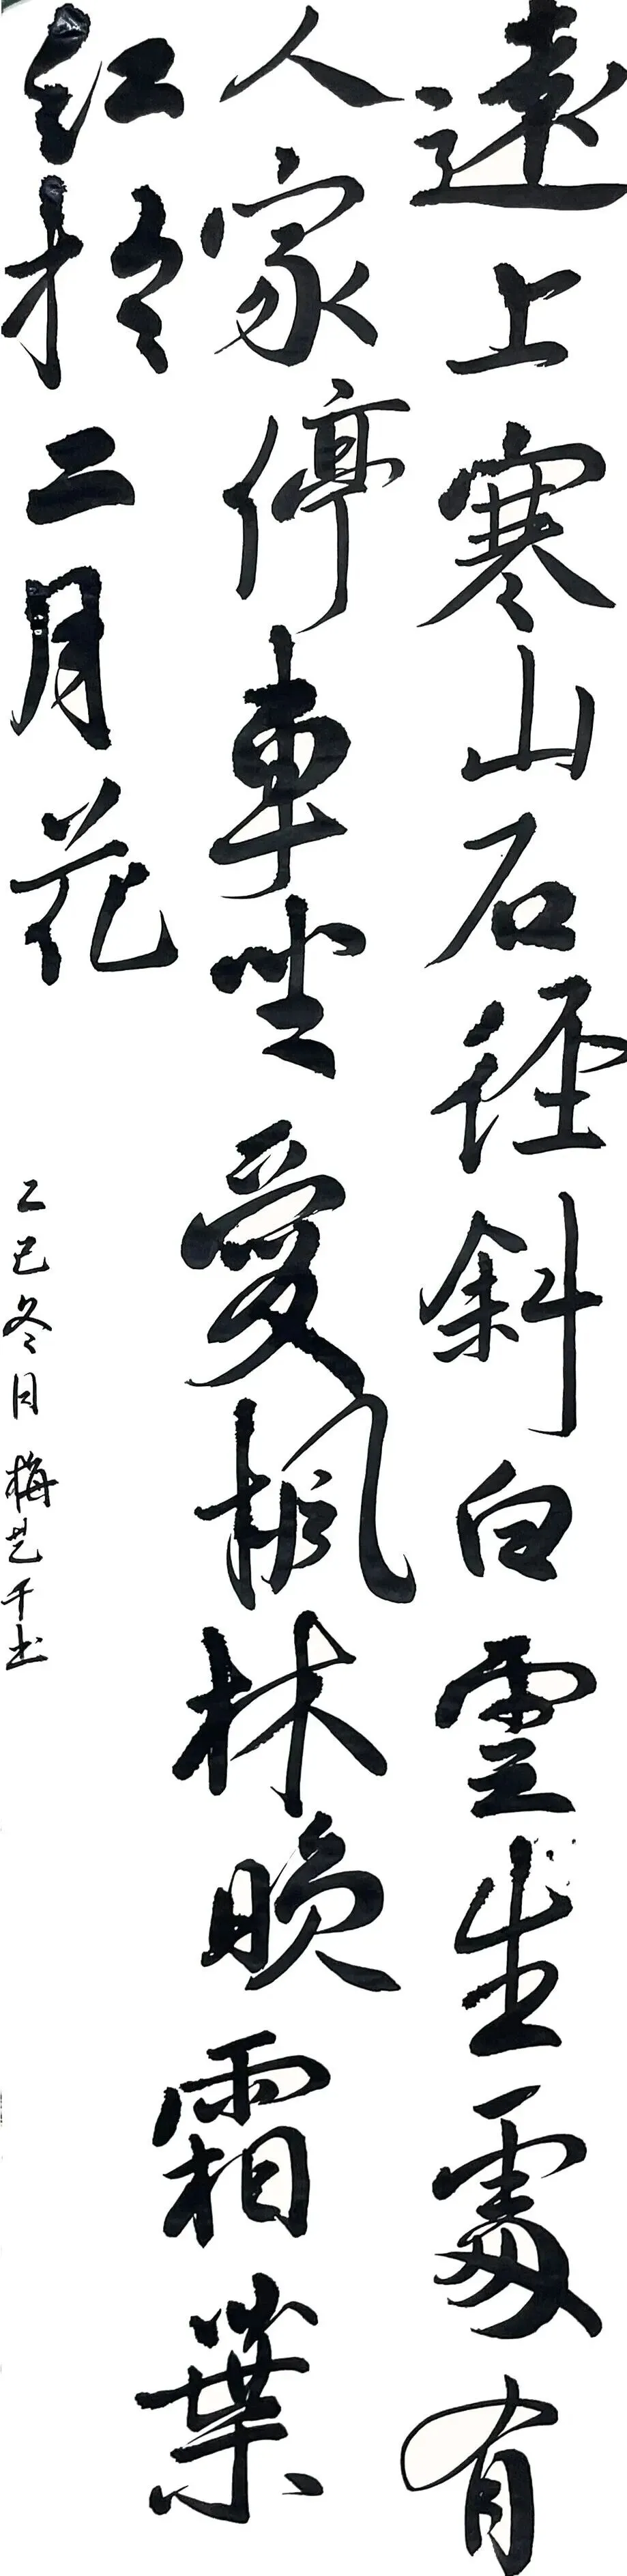 遠上寒山石径斜白雲生處有
人家停車坐愛楓林晚霜葉
紅於二月花
乙巳冬月 梅芝千书